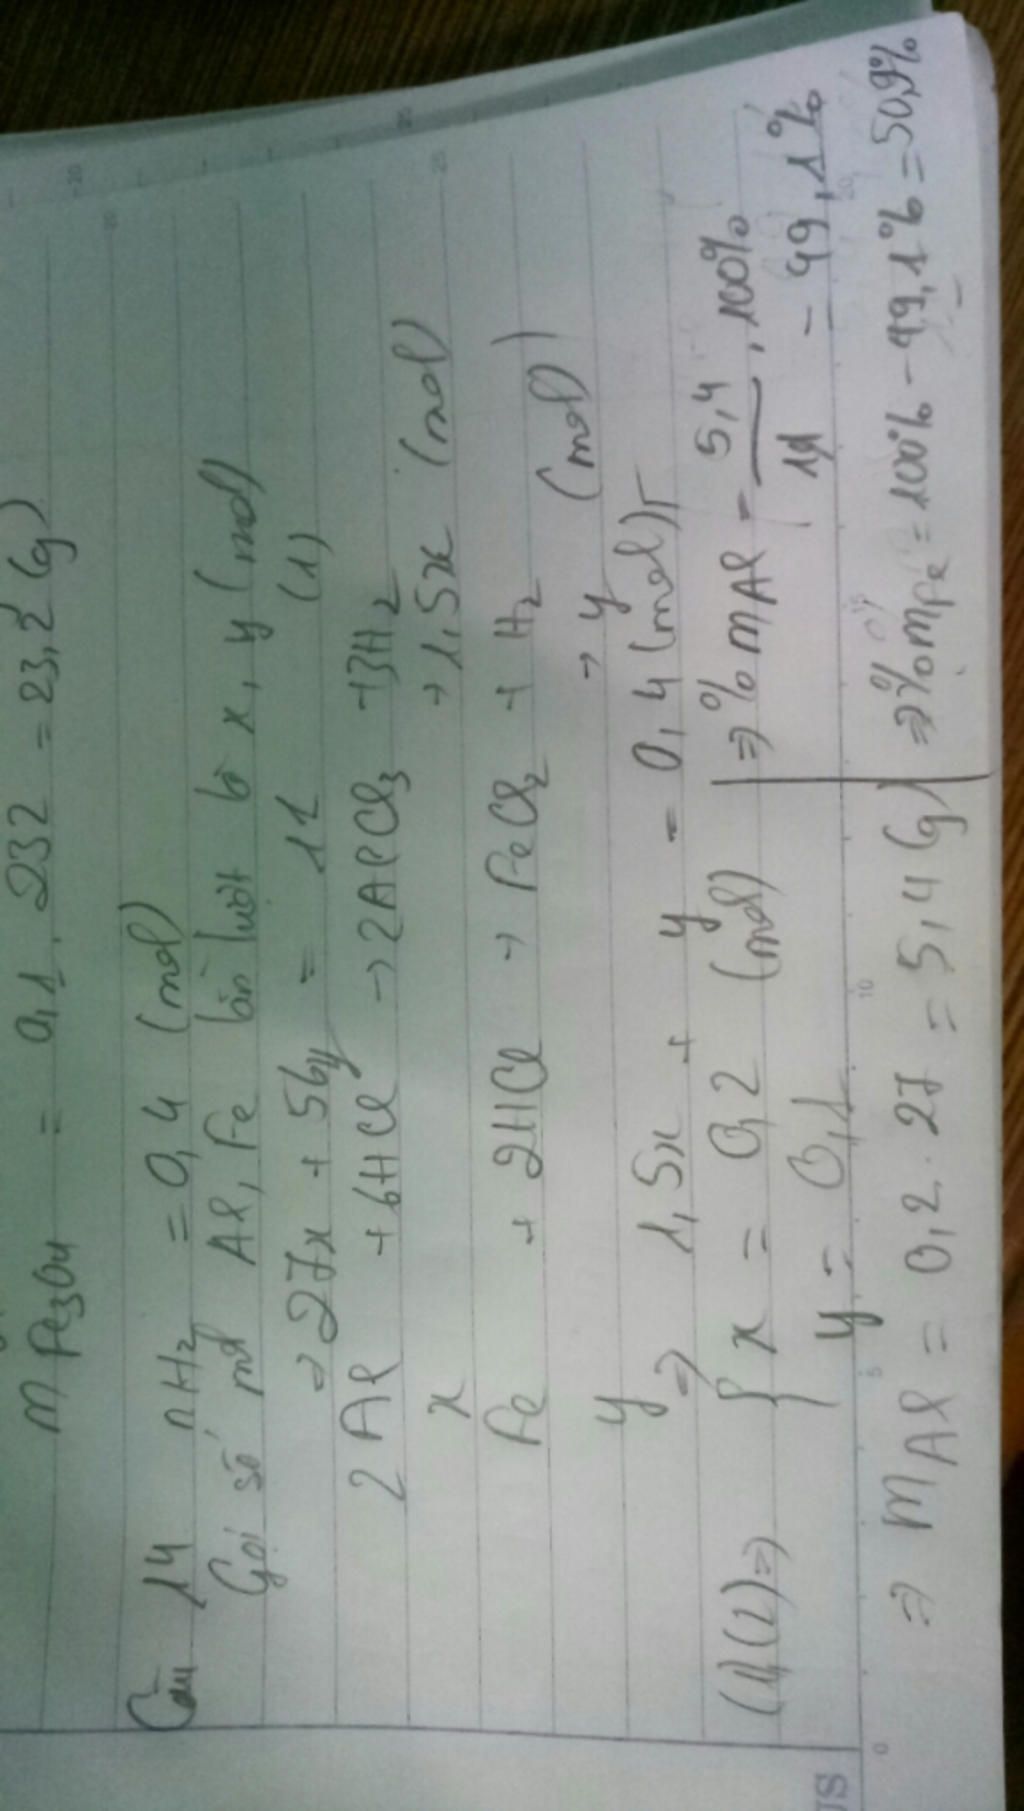 m Fe3O4 = 0,1 . 232 = 23,2 (g)
Câu 14 nH2 = 0,4 (mol)
Gọi số mol Al, Fe lần lượt là x, y (mol)
⇒ 27x + 56y = 11 (1)
2Al + 6HCl → 2AlCl3 + 3H2
x → 1,5x (mol)
Fe + 2HCl → FeCl2 + H2
y → y (mol)
⇒ 1,5x + y = 0,4 (mol)
(1)(2) ⇒ { x = 0,2 (mol)
y = 0,1
⇒ mAl = 0,2 . 27 = 5,4 (g)
⇒ % mAl = 5,4 / 11 . 100%
= 49,1%
⇒ % mFe = 100% - 49,1% = 50,9%
0 5 10 15 20